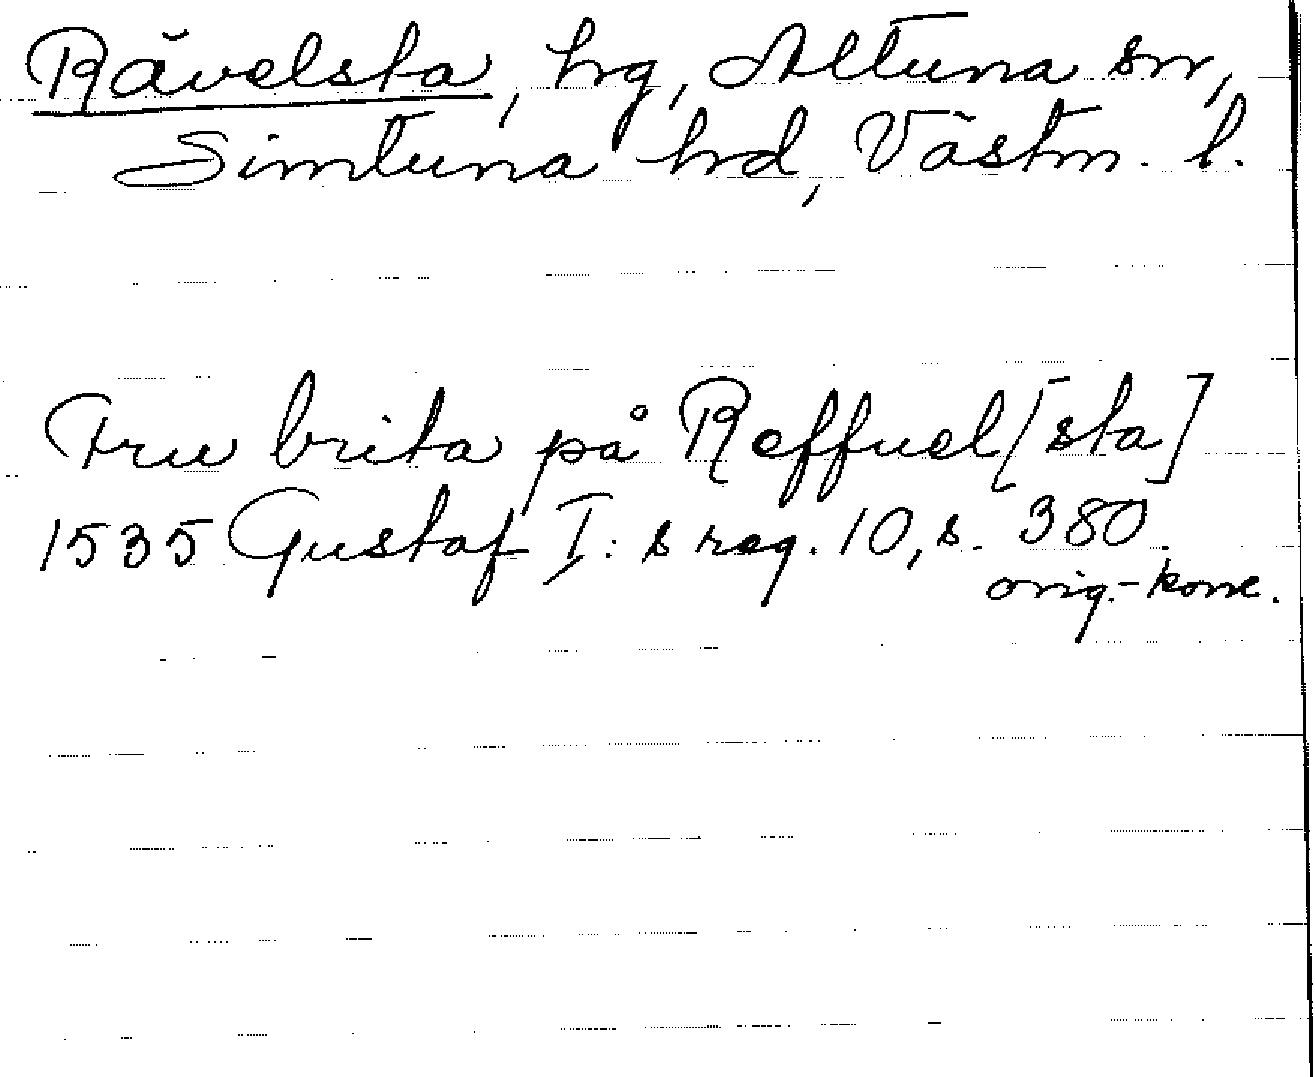 Rävelsta, hg, Altuna sn,
Simtuna hd, Västm. l.
Fru brita på Reffuel[sta]
1535 Gustaf I: s reg. 10, s. 380.
orig.-konc.